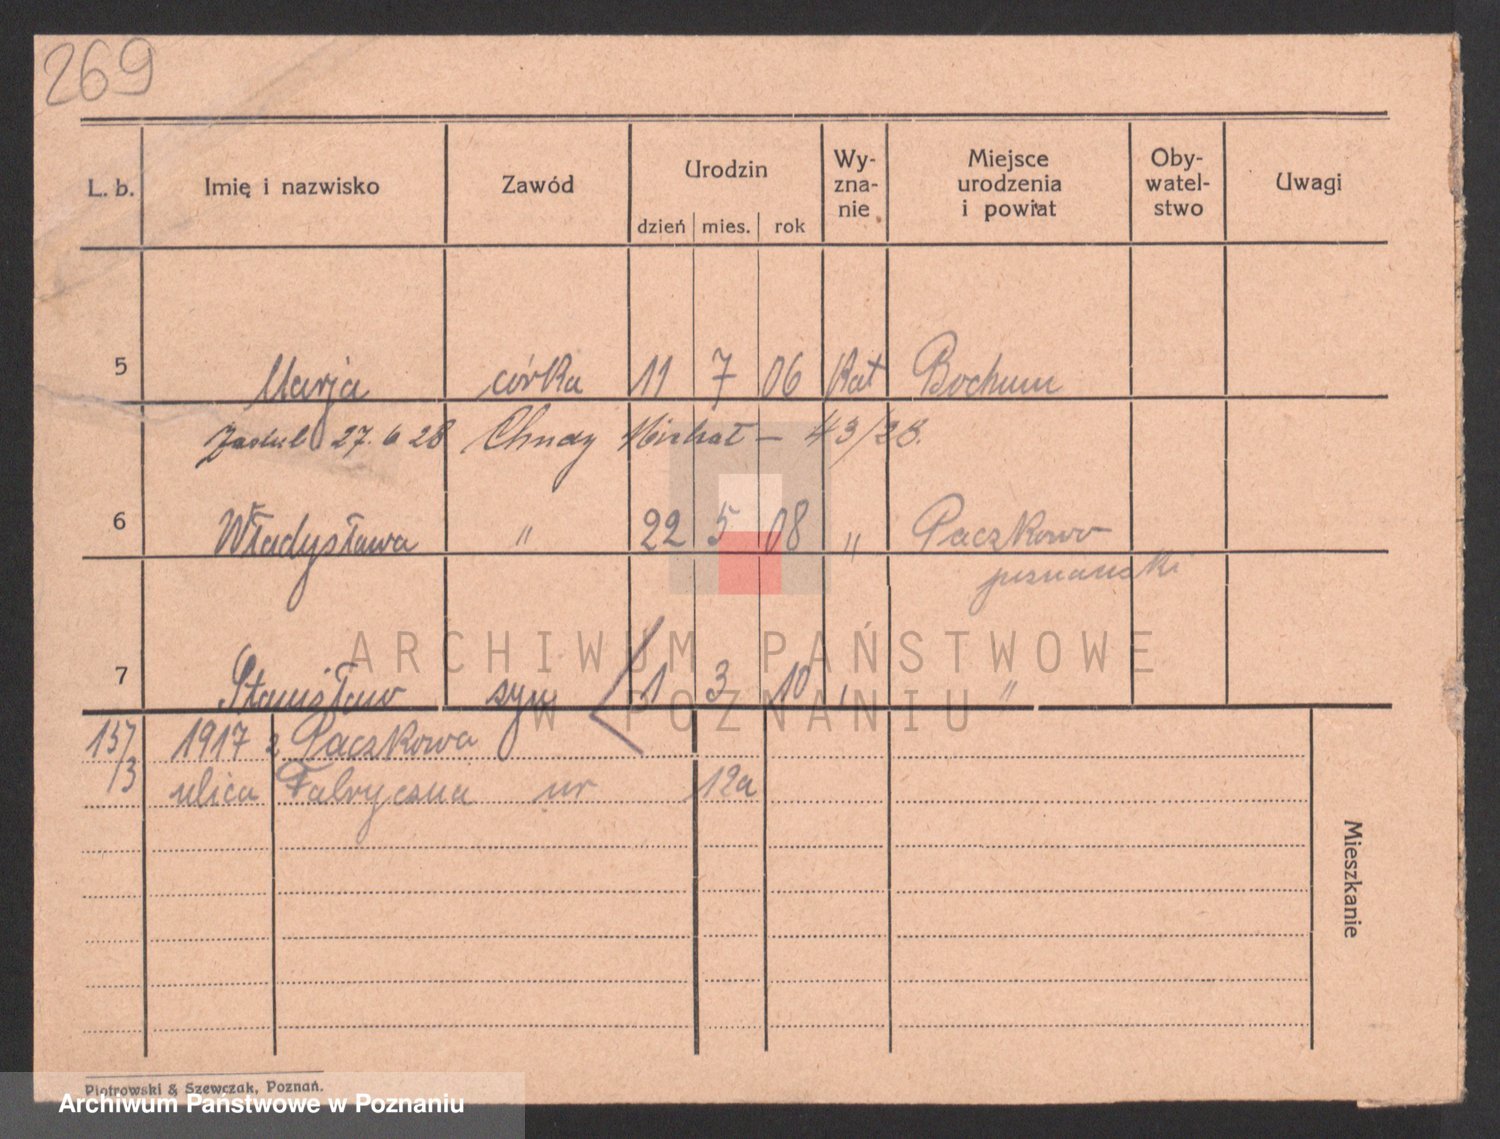 269
L. b. Imię i nazwisko Zawód Urodzin Wy-zna-nie Miejsce urodzenia i powiat Oby-watel-stwo Uwagi
dzień mies. rok
5 Marja córka 11 7 06 Kat Bochum
27. 6 28 Chudy Michał – 43/28.
6 Władysława " 22 5 08 " Paczkowo
poznański
7 Stanisław syn 1 3 10 " "
ARCHIWUM PAŃSTWOWE
W POZNANIU
15/3 1917 z Paczkowa
ulica Fabryczna nr 12a
Mieszkanie
Piotrowski & Szewczak, Poznań.
Archiwum Państwowe w Poznaniu